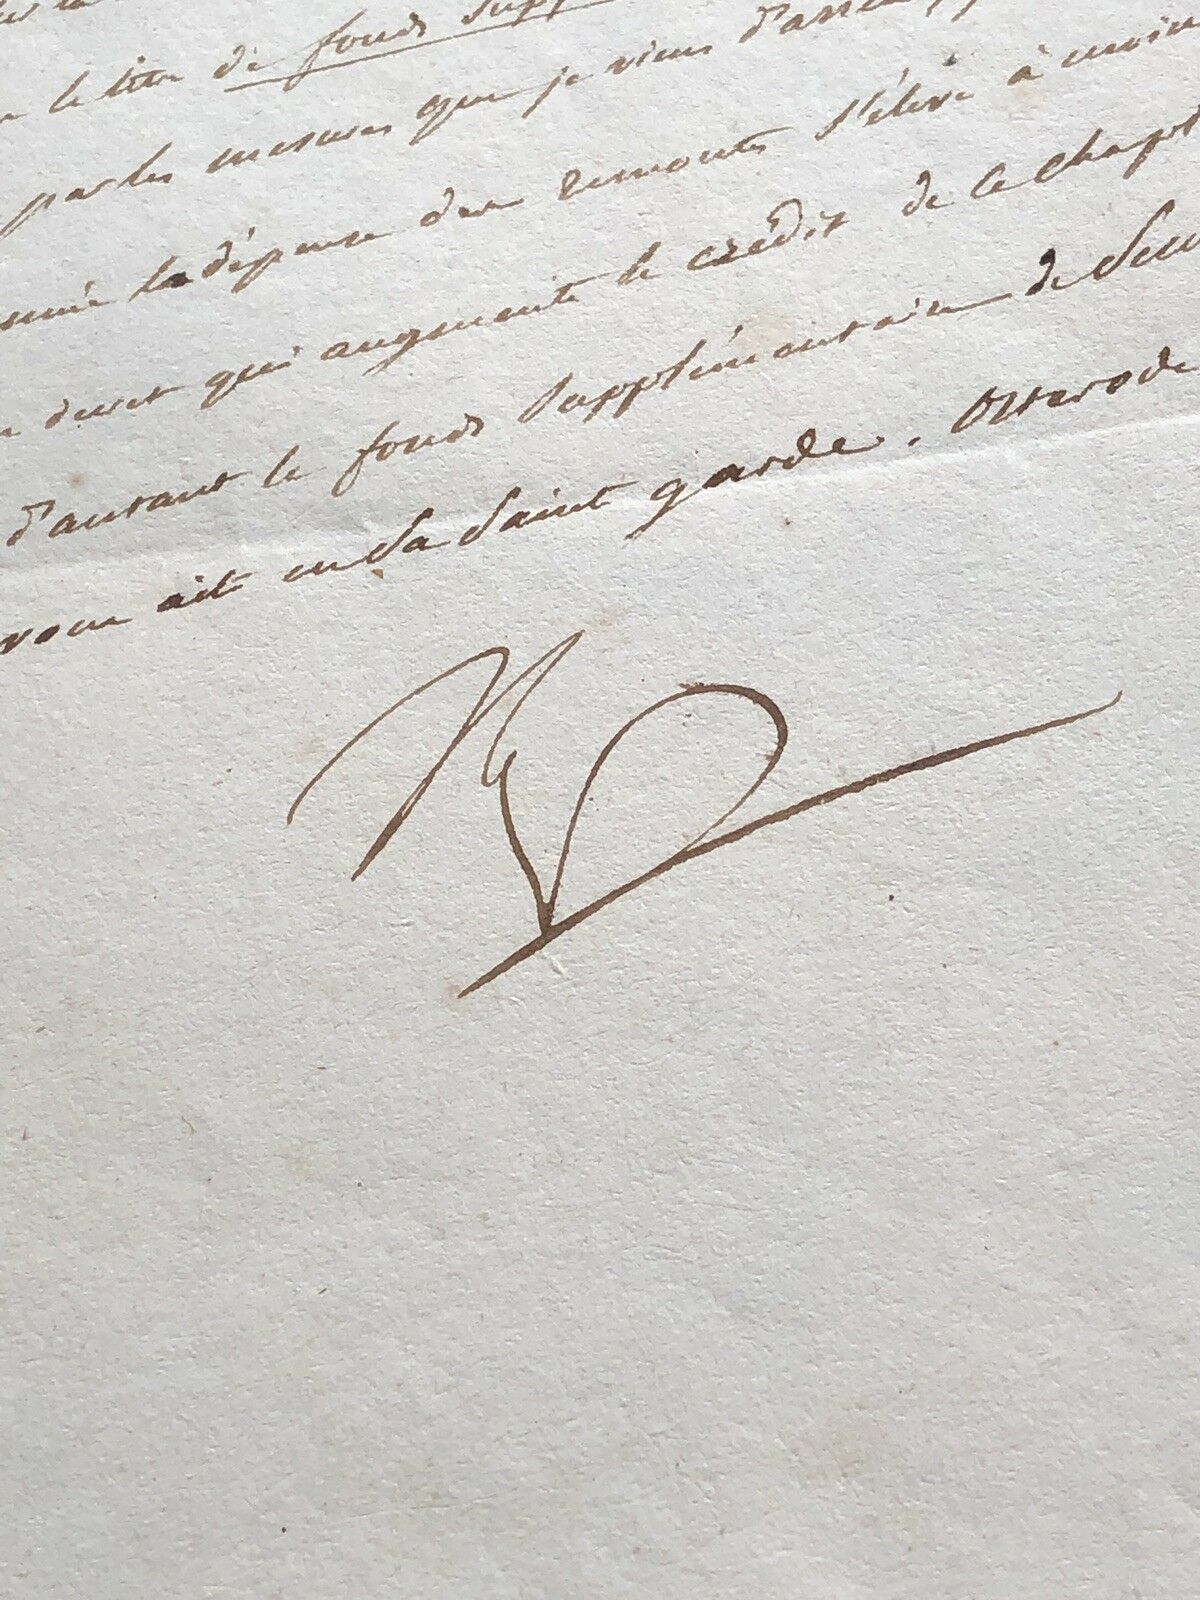 le titre de fonds supp
par les mesures que je viens d'arrê
la dépense des remontes s'élève à moin
decret qui augmente le crédit de ce chapit
d'autant le fonds supplémentaire de Sem
vous ait en Sa Saint garde. Osterode
Np